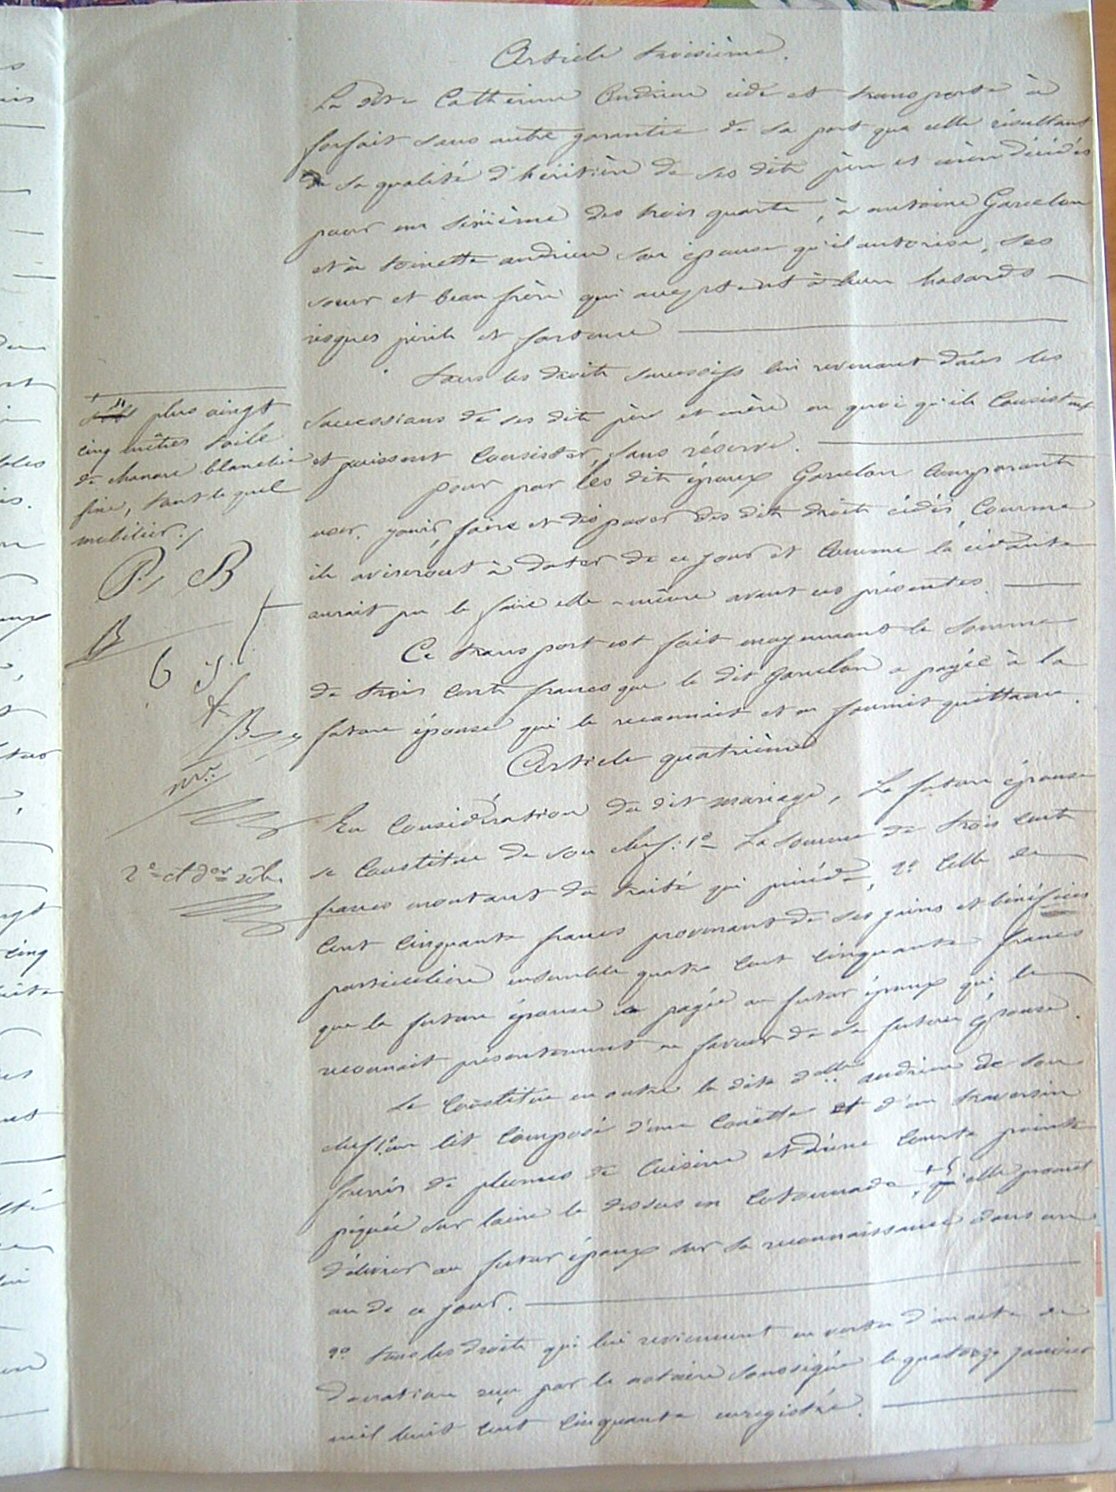 Article troisième.
La dite Catherine Andrieu cède et transporte à
forfait sans autre garantie de sa part que celle résultant
de sa qualité d'héritière de ses dits père et mère décédés
pour un sixième des trois quarts, à antoine Garcelon
et à toinette andrieu son épouse qu'il autorise, ses
sœur et beau frère qui acceptent à leurs hasards
risques périls et fortune
Tous les droits successifs lui revenant dans les
successions de ses dits père et mère en quoi qu'ils consistent
et puissent consister, sans réserve.
pour par les dits époux Garcelon comparants
user, jouir, faire et disposer des dits droits cédés, comme
ils aviseront à dater de ce jour et comme la cédante
aurait pu le faire elle-même avant ces présentes.
Ce transport est fait moyennant la somme
de trois cents francs que le dit Garcelon a payée à la
future épouse qui le reconnait et en fournit quittance.
Article quatrième
En considération du dit mariage, La future épouse
se constitue de son chef: 1o La somme de trois cents
francs montant du traité qui précède, 2o Celle de
cent cinquante francs provenant de ses gains et bénéfices
particuliers ensemble quatre cent cinquante francs
que la future épouse a payée au futur époux qui le
reconnait présentement en faveur de sa future épouse.
Se constitue en outre la dite dlle andrieu de son
chef 1o un lit composé d'une couëtte et d'un traversin
fournis de plumes de cuisine et d'une courte pointe
piquée sur laine le dessus en cotonnade + qu'elle promet
délivrer au futur époux sur sa reconnaissance dans un
an de ce jour.
2o tous les droits qui lui reviennent en vertu d'un acte de
donation reçu par le notaire soussigné le quatorze janvier
mil huit cent cinquante enregistré.
+ plus vingt
cinq mètres toile
de chanvre blanchie
fine, tant le quel
mobilier./
P, B
B
6 J.
B
2o et der rôle.